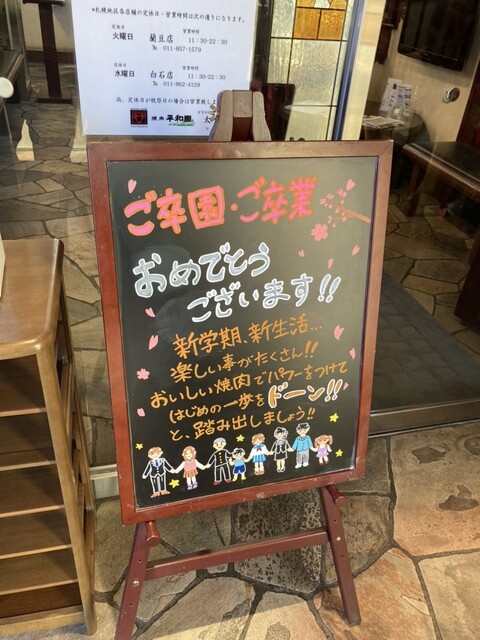 *札幌地区各店舗の定休日・営業時間は次の通りになります。
定休日 営業時間
火曜日 蘭豆店 11:30-22:30
℡ 011-857-1579
定休日 営業時間
水曜日 白石店 11:30-22:30
℡ 011-862-4129
尚、定休日が祝祭日の場合は営業致しま
焼肉 平和園
ご卒園・ご卒業
おめでとう
ございます!!
新学期、新生活…
楽しい事がたくさん!!
おいしい焼肉でパワーをつけて
はじめの一歩をドーン!!
と、踏み出しましょう!!